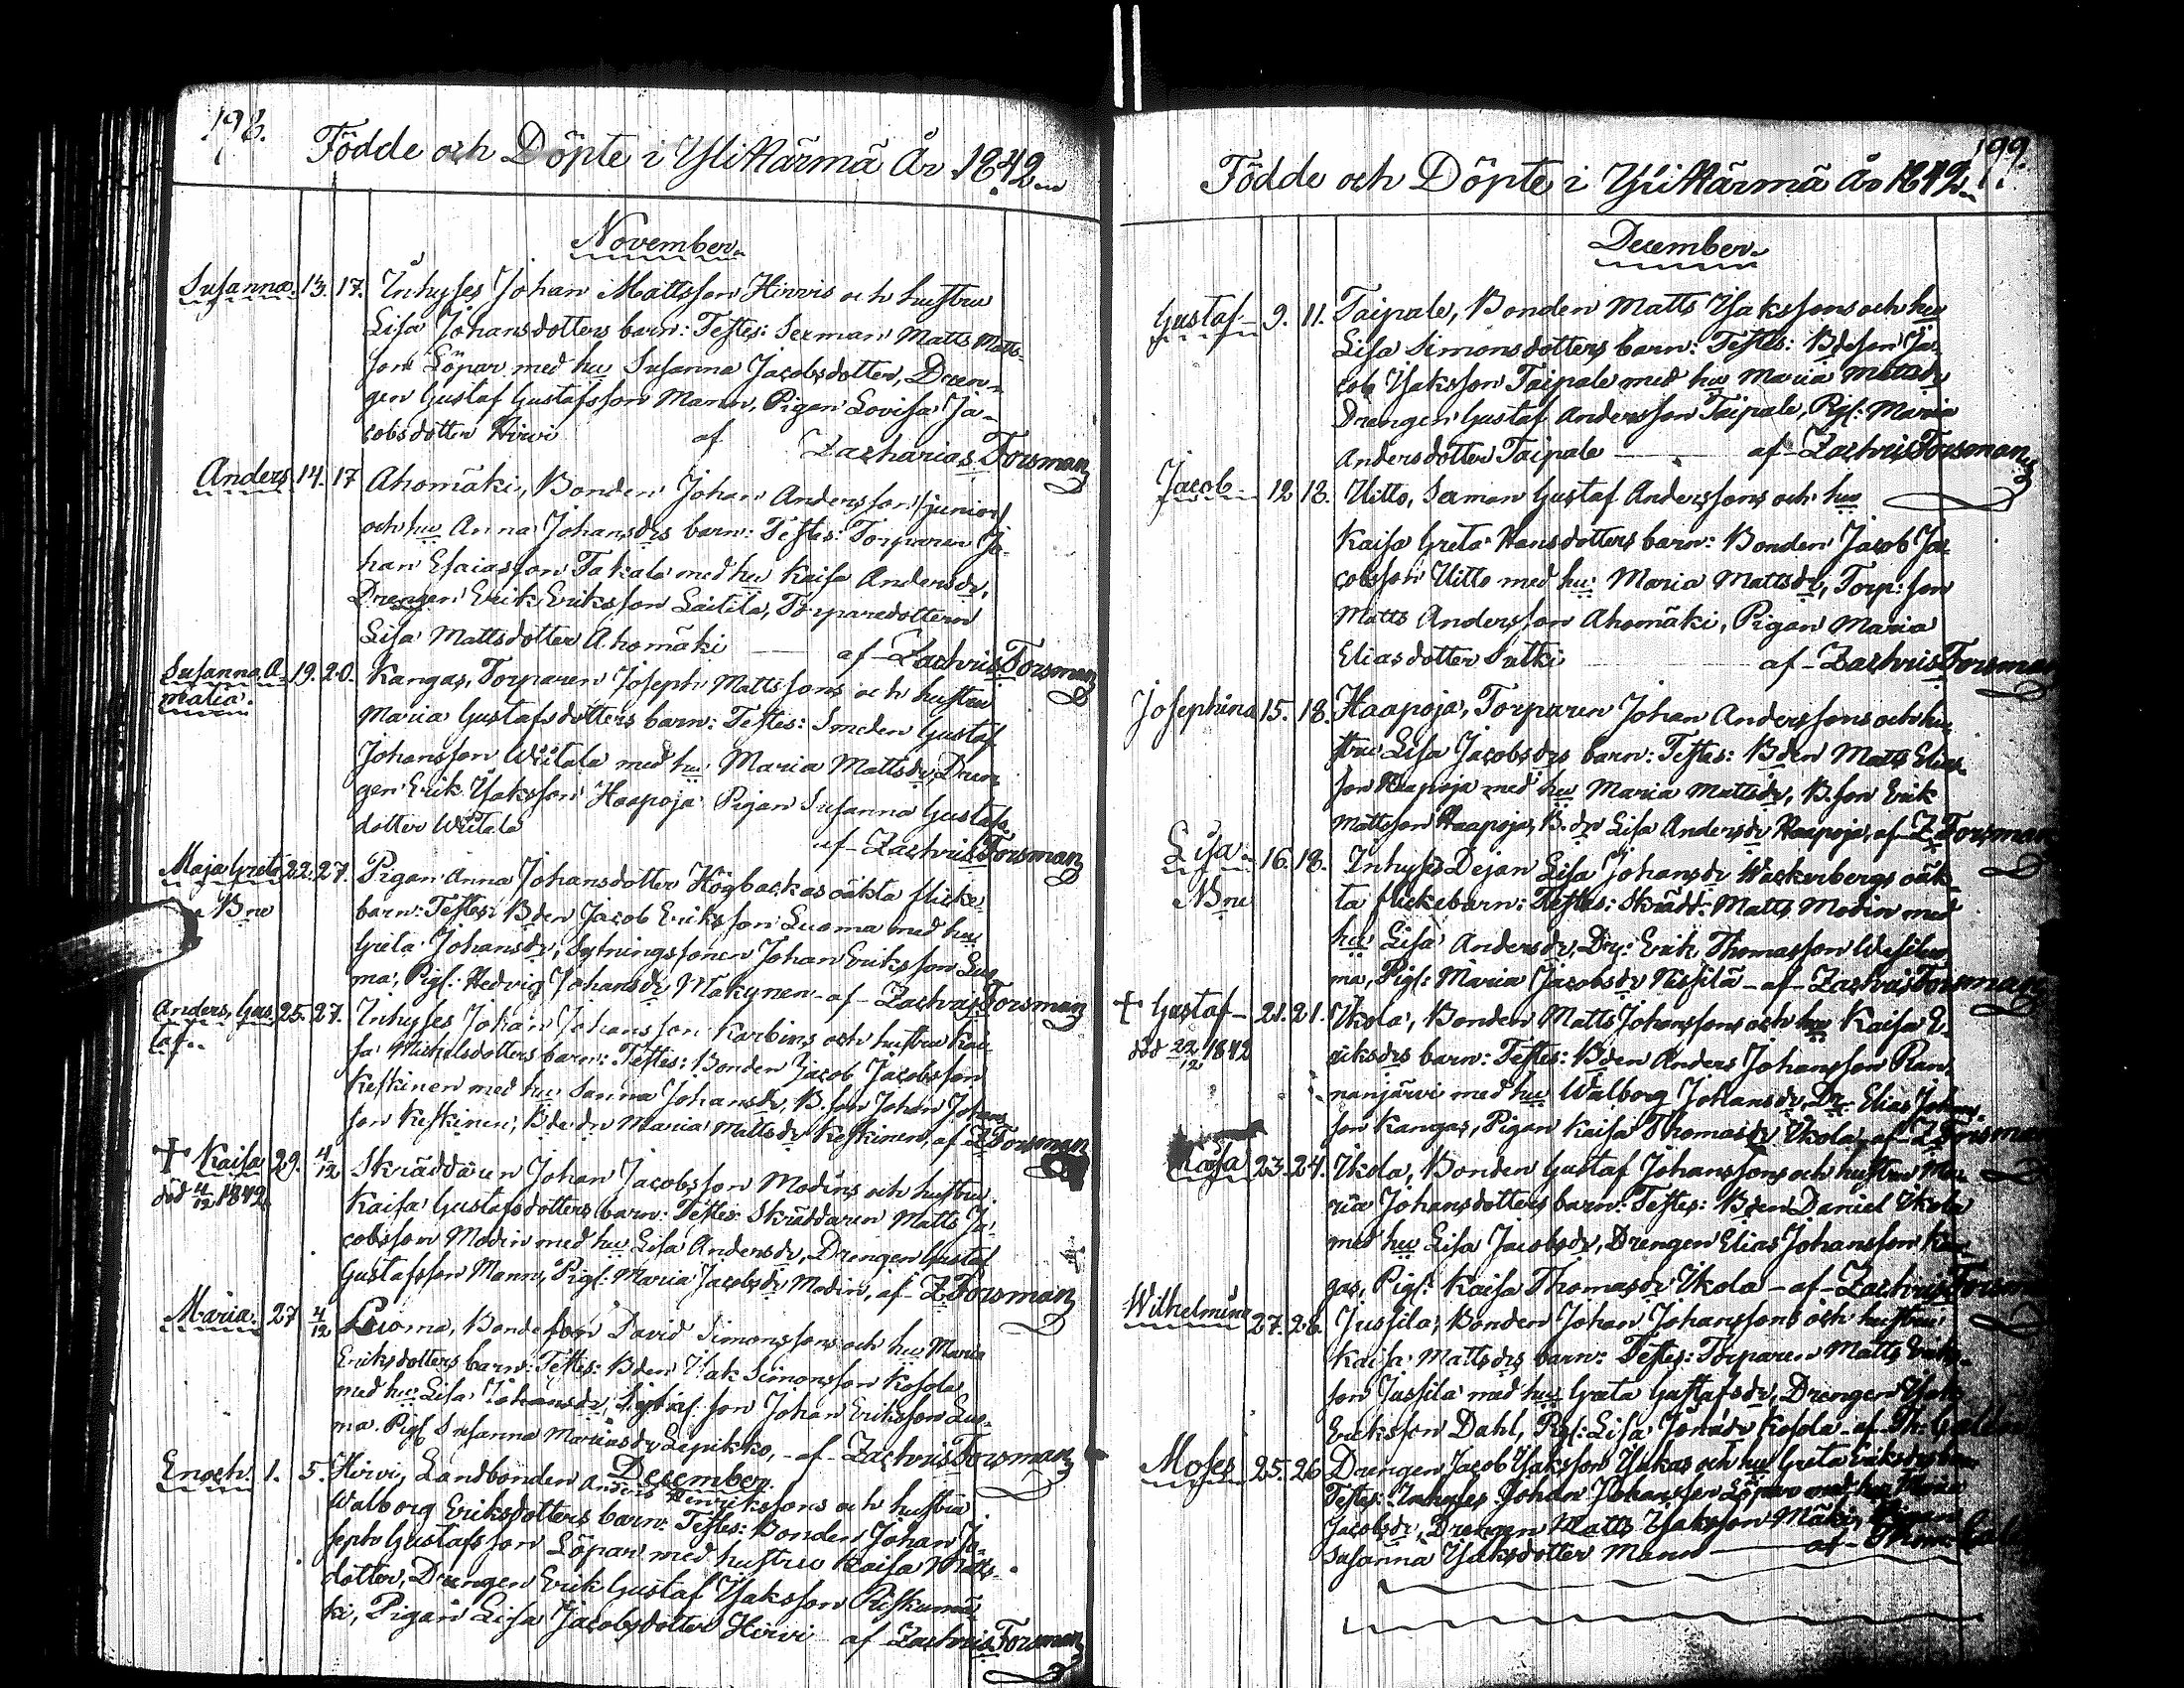 198.
Födde och Döpte i Yli Härmä År 1842
November
Susanna. 13. 17. Inhyses Johan Mattsson Hirvis och hustru
Lisa Johansdotters barn: Testes: Sexman Matts Matts-
son Löpar med hu Susanna Jacobsdotter, Dren-
gen Gustaf Gustafsson Mann, Pigan Lovisa Ja-
cobsdotter Hirvi af Zacharias Forsman
Anders 14. 17 Ahomäki, Bonden Johan Andersson (junior)
och hu Anna Johansdrs barn: Testes: Torparen Jo-
han Esaiasson Takala med hu Kaisa Andersdr,
Drengen Erik Eriksson Laitila, Torparedottern
Lisa Mattsdotter Ahomäki af Zachris Forsman
Susanna A- 19. 20. Kangas, Torparen Joseph Mattssons och hustru
malia. Maria Gustafsdotters barn: Testes: Smeden Gustaf
Johansson Wiitala med hu Maria Mattsdr, Dren-
gen Erik Isaksson Haapoja Pigan Susanna Gustafs-
dotter Wiitala af Zachris Forsman
Maja Greta 22. 27. Pigan Anna Johansdotter Högbackas oäkta flicke-
Bne barn: Testes: Bden Jacob Eriksson Luoma med hu
Greta Johansdr, Sytningssonen Johan Eriksson Luo-
ma, Pigs: Hedvig Johansdr Makynen af Zachris Forsman
Anders Gus- 25. 27. Inhyses Johan Johansson Karbins och hustru Kai-
taf sa Michelsdotters barn: Testes: Bonden Jacob Jacobsson
Keskinen med hu Sanna Johansdr, B. son Johan Johans-
son Keskinen, Bde dr Maria Mattsdr Keskinen, af Z Forsman
+ Kaisa 29. 4/12 Skräddaren Johan Jacobsson Modins och hustru
död 4/12 1842 Kaisa Gustafsdotters barn: Testes: Skräddaren Matts Ja-
cobsson Modin med hu Lisa Andersdr, Drengen Gustaf
Gustafsson Mann, Pigs: Maria Jacobsdr Modin, af Z Forsman
Maria. 27 4/12 Luoma, Bondeson David Simonssons och hu Maria
Eriksdotters barn: Testes: Bden Isak Simonsson Kosola
med hu Lisa Johansdr, Sytnifs: son Johan Eriksson Luo-
ma Pigs Susanna Mariasdr Lepikko, af Zachris Forsman
December
Enoch. 1. 5 Hirvi, Landbonden Anders Henrikssons och hustru
Walborg Eriksdotters barn: Testes: Bonden Johan Jo-
seph Gustafsson Löpar med hustru Kaisa Matts-
dotter, Drengen Erik Gustaf Isaksson Riskumä-
ki, Pigan Lisa Jacobsdotter Hirvi af Zachris Forsman
199.
Födde och Döpte i Yli Härmä År 1842
December
Gustaf 9. 11. Taipale, Bonden Matts Isakssons och hu
Lisa Simonsdotters barn: Testes: Bdeson Ja-
cob Isaksson Taipale med hu Maria Mattsdr
Drengen Gustaf Andersson Taipale, Pigs: Maria
Andersdotter Taipale af Zachris Forsman
Jacob 12 13. Uitto, Sexman Gustaf Anderssons och hu
Kaisa Greta Hansdotters barn: Bonden Jacob Ja-
cobsson Uitto med hu Maria Mattsdr, Torp: son
Matts Andersson Ahomäki, Pigan Maria
Eliasdotter Sutki af Zachris Forsman
Josephina 15. 18. Haapoja, Torparen Johan Anderssons och hu-
stru Lisa Jacobsdrs barn: Testes: Bden Matts Elias-
son Haapoja med hu Maria Mattsdr, B. son Erik
Mattsson Haapoja, B. dr Lisa Andersdr Haapoja, af Z Forsman
Lisa 16. 18. Inhyses Dejan Lisa Johansdr Wackerbergs oäk-
Bne ta flickebarn: Testes: Skrädd: Matts Modin med
hu Lisa Andersdr, Dr: Erik Thomasson Wesiluo-
ma, Pigs: Maria Jacobsdr Nisfilä af Zachris Forsman
+ Gustaf 21. 21. Ikola, Bonden Matts Johanssons och hu Kaisa E-
död 22/12 1842 riksdrs barn: Testes: Bden Anders Johansson Ran-
nanjärvi med hu Walborg Johansdr, Dr. Elias Johans-
son Kangas, Pigan Kaisa Thomasdr Ikola af Z Forsman
Kaisa 23. 24. Ikola, Bonden Gustaf Johanssons och hustru Ma-
ria Johansdotters barn: Testes: Bden Daniel Ikola
med hu Lisa Jacobsdr, Drengen Elias Johansson Kan-
gas, Pigs: Kaisa Thomasdr Ikola af Zachris Forsman
Wilhelmina 27. 28. Jussila, Bonden Johan Johanssons och hustru
Kaisa Mattsdrs barn: Testes: Torparen Matts Eriks-
son Jussila med hu Greta Gustafsdr, Drengen Isak
Eriksson Dahl, Pigs: Lisa Jonasdr Kosola af Th:
Moses 25. 26 Drengen Jacob Isaksson Ylukas och hu Greta Eriksdrs barn
Testes: Inhyses Johan Johansson Löpar med hu Maria
Jacobsdr, Drengen Matts Isaksson Mäki, Pigan
Susanna Isaksdotter Mann af Thom: